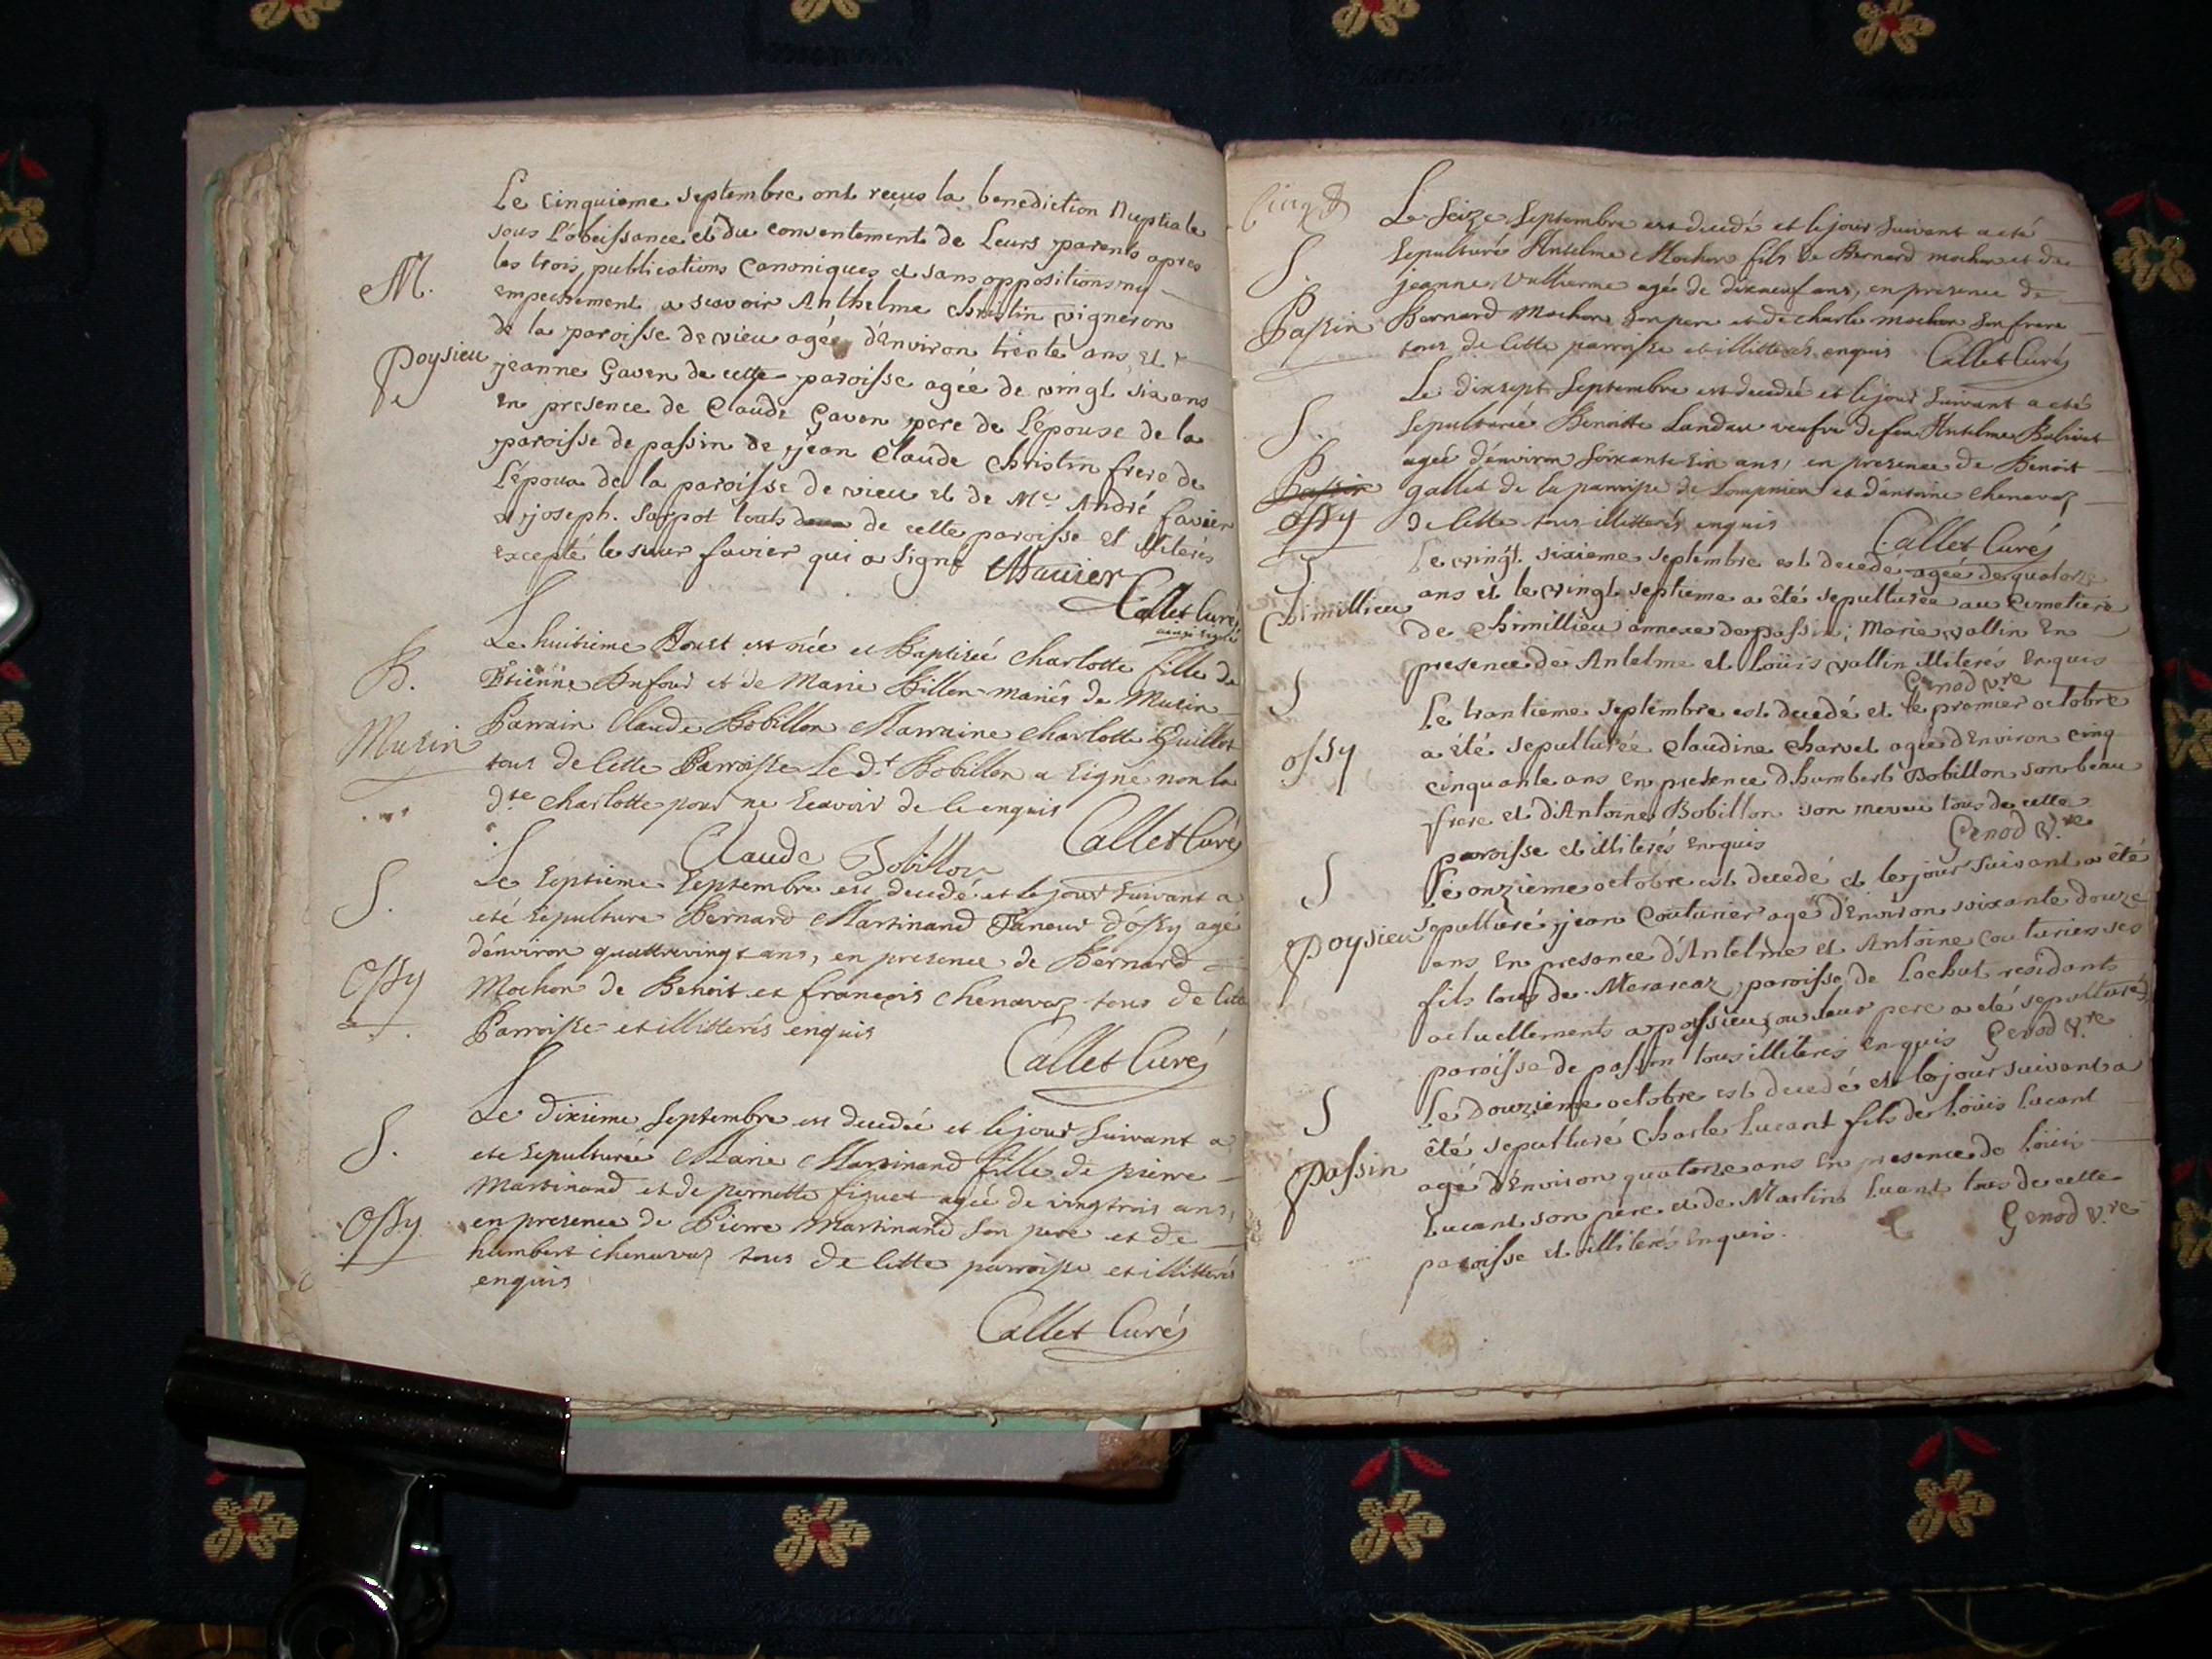 Le cinquieme septembre ont reçus la benediction Nuptiale
sous l'obeissance et du consentement de Leurs parents apres
les trois publications Canoniques et sans oppositions ny
M.
empechement a scavoir Anthelme christin vigneron
de la paroisse de vieu agée d'Environ trente ans, et
poysieu
jeanne Gaven de cette paroisse agée de vingt six ans
En presence de Claude Gaven pere de L'épouse de la
paroisse de passin de jean Claude Christin frere de
L'époux de la paroisse de vieu et de Me André favier
et joseph. Sarpot touts de cette paroisse et illiterés
excepté le sieur favier qui a signé
Callet Curé
Le huitieme Aoust est née et Baptisée charlotte fille de
B.
Etiënne Dufour et de Marie Billon mariés de Musin
Musin
Parrain Claude Bobillon Marraine charlotte Guillot
tous de cette Parroisse le dt Bobillon a signé non la
dte charlotte pour ne scavoir de ce enquis
Callet Curé
Claude Bobillon
Le septieme septembre est decedé et le jour suivant a
S.
eté sepulture Bernard Martinand d'ossy agé
d'environ quattrevingt ans, en presence de Bernard
Ossy
Mochon de Benoit et françois chenavaz tous de cette
Parroisse et illitterés enquis
Callet Curé
Le dixieme septembre est decedée et le jour suivant a
S.
eté sepulturée Marie Martinand fille de pierre
Martinand et de pernette figuet agée de vingtrois ans,
Ossy
en presence de Pierre Martinand son pere et de
humbert chenavaz tous de cette parroisse et illitterés
enquis
Callet Curé
Cinq
Le seize septembre est decedé et le jour suivant a eté
S.
sepulturé Antelme Mochon fils de Bernard mochon et de
jeanne agé de dixneuf ans, en presence de
Passin
Bernard Mochon son pere et de charle mochon son frere
tous de cette parroisse et illitterés enquis Callet Curé
Le dixsept septembre est decedée et le jour suivant a eté
S.
sepulturée Benoitte Landau veufve de feu Antelme Balivet
agée d'environ soixante six ans, en presence de Benoit
Passin
gallet de la parroisse de Lompnieu et d'antoine chenavaz
ossy
de cette tous illitterés enquis
Callet Curé
Le vingt sixieme septembre est decedé agée de quatorze
S.
ans et le vingt septieme a été sepulturée au Cimetiere
Chimillieu
de Chimillieu annexe de passin; Marie vallin En
presence de Antelme et Loüis vallin illiterés Enquis
Genod vre
S
Le trantieme septembre est decedé et le premier octobre
ossy
a été sepulturée Claudine Charvet agée d'Environ cinq
cinquante ans En presence d'humbert Bobillon son beau
frere et d'Antoine Bobillon son neveu tous de cette
paroisse et illiterés Enquis
Genod vre
S
Le onzieme octobre est decedé et le jour suivant a été
Poysieu
sepulturé jean Couturier agé d'Environ soixante douze
ans En presence d'Antelme et Antoine Couturier ses
fils tous de Merascaz, paroisse de Lochut residants
actuellements a possieu ou leur pere a eté sepulturé
paroisse de passin tous illiteres Enquis Genod vre
S
Le Douzieme octobre est decedé et le jour suivant a
été sepulturé Charle Lucant fils de Loüis Lucant
passin
agé d'Environ quatorze ans En presence de Loüis
Lucant son pere et de Martin Lucant tous de cette
paroisse et illiterés Enquis.
Genod vre